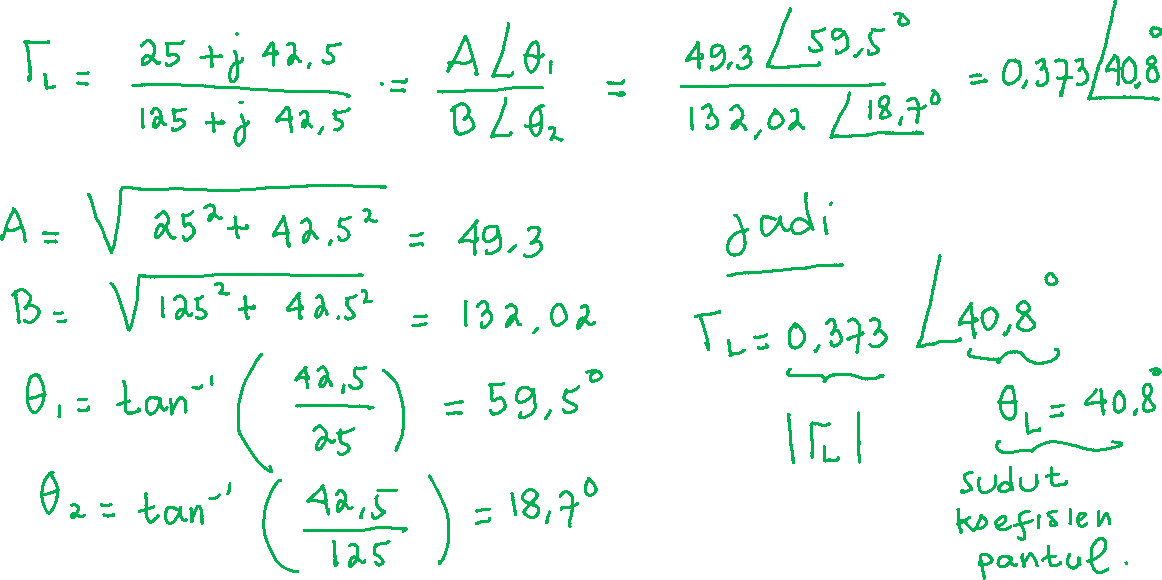 Γ_L = (25 + j 42,5) / (125 + j 42,5) = A∠θ₁ / B∠θ₂ = 49,3∠59,5° / 132,02∠18,7° = 0,373∠40,8°
A = √(25² + 42,5²) = 49,3
B = √(125² + 42,5²) = 132,02
θ₁ = tan⁻¹ (42,5 / 25) = 59,5°
θ₂ = tan⁻¹ (42,5 / 125) = 18,7°
jadi
Γ_L = 0,373 ∠40,8°
|Γ_L|
θ_L = 40,8°
sudut
koefisien
pantul.